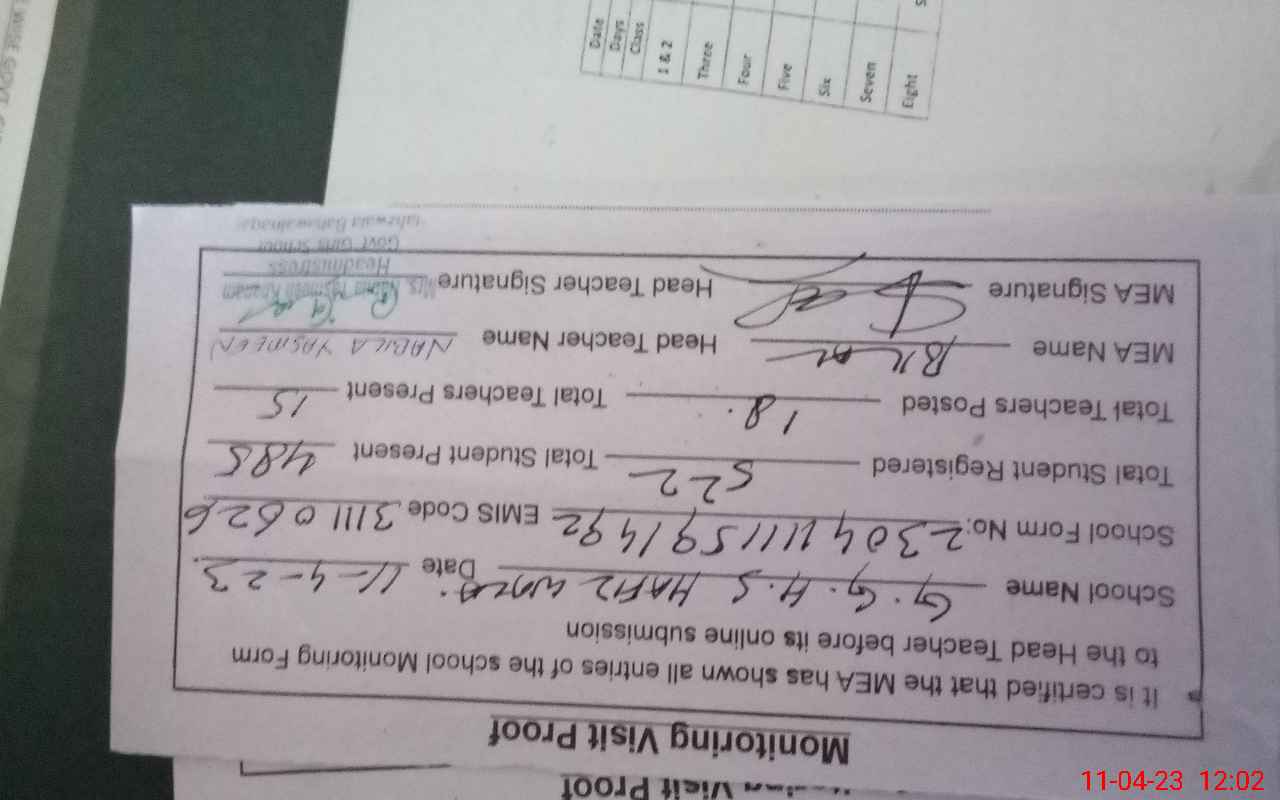 Monitoring Visit Proof
It is certified that the MEA has shown all entries of the school Monitoring Form
to the Head Teacher before its online submission
School Name G.G.H.S HAFIZ WALA. Date 11-4-23.
School Form No: 23041111591492 EMIS Code 31110626
Total Student Registered 522 Total Student Present 485
Total Teachers Posted 18. Total Teachers Present 15
MEA Name Head Teacher Name NABILA YASMEEN
MEA Signature Head Teacher Signature
Headmistress
Govt Girls School
Visit Proof
Date
Days
Class
1 & 2
Three
Four
Five
Six
Seven
Eight
11-04-23 12:02